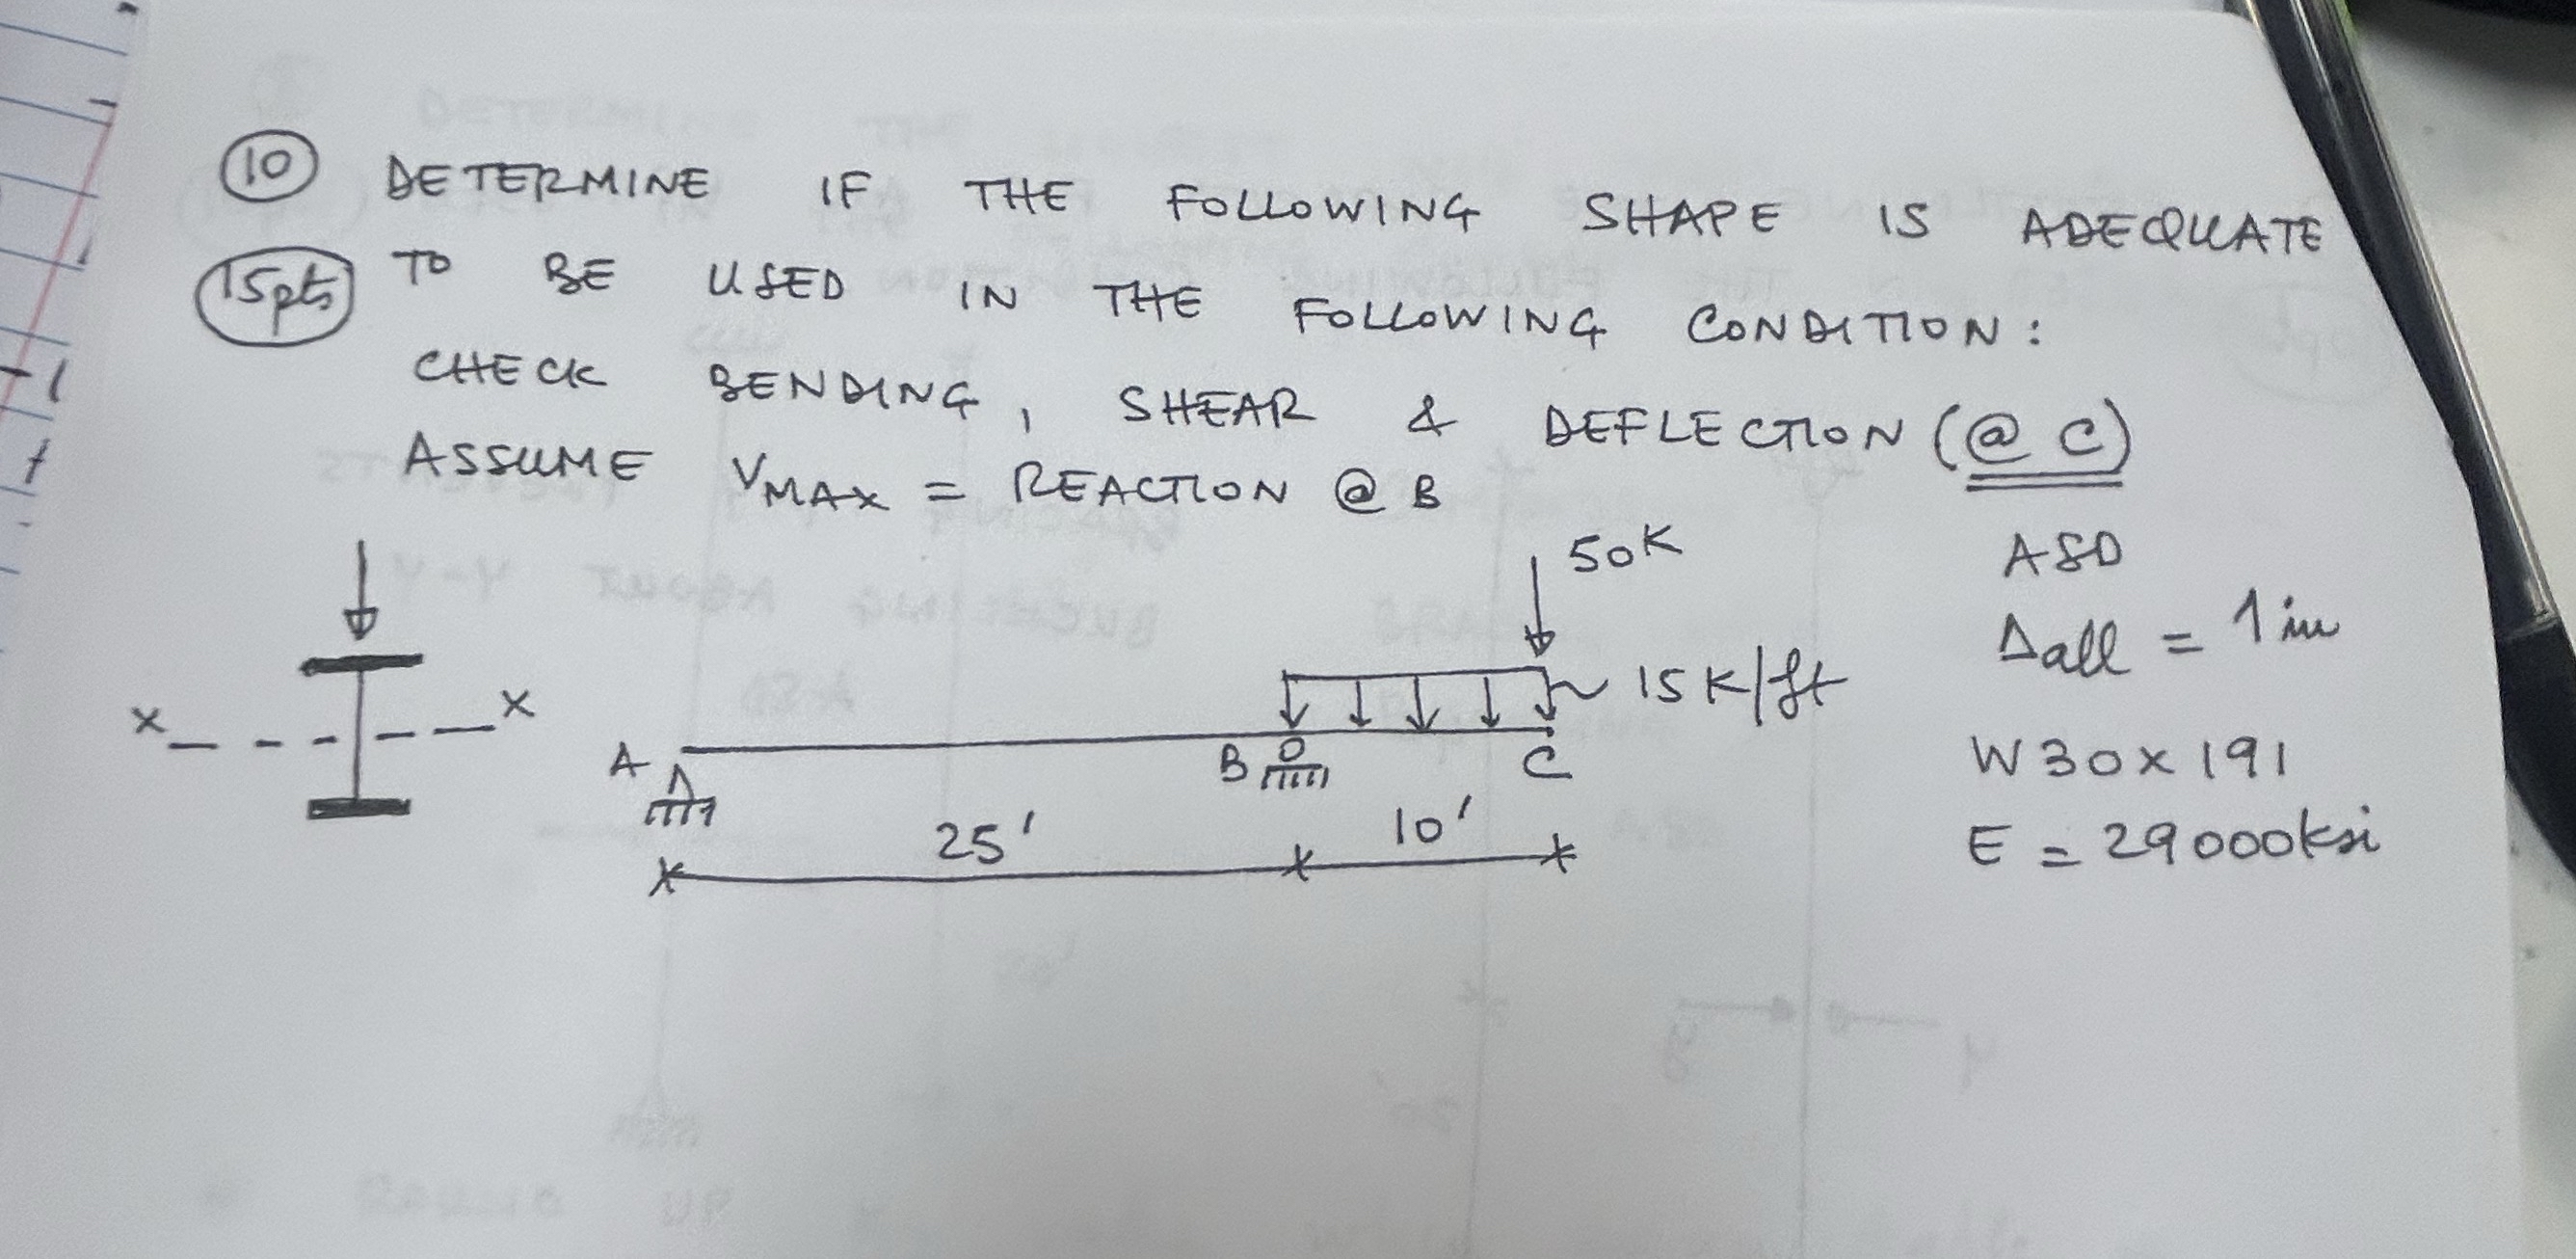 10 DETERMINE IF THE FOLLOWING SHAPE IS ADEQUATE
15pts TO BE USED IN THE FOLLOWING CONDITION:
CHECK BENDING, SHEAR & DEFLECTION (@ C)
ASSUME VMAX = REACTION @ B
50K
ASD
Δall = 1 in
x x
15K/ft
A B C
W30x191
25' 10'
E = 29000ksi